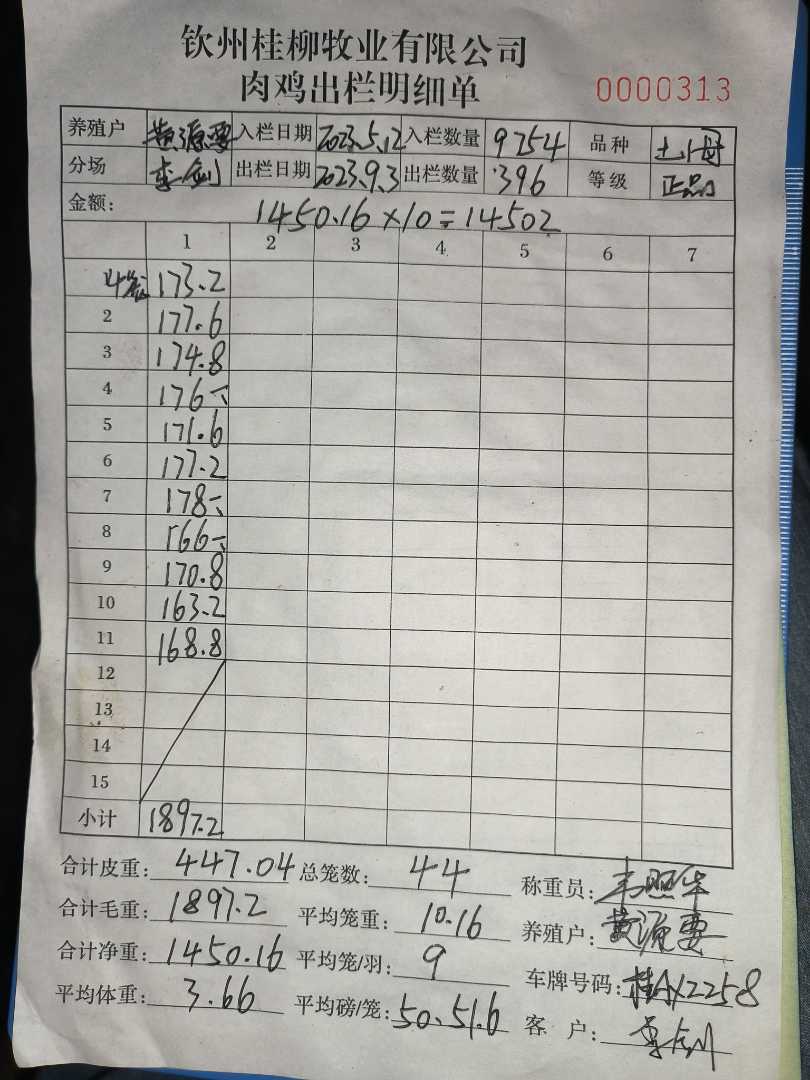 钦州桂柳牧业有限公司
肉鸡出栏明细单 0000313
养殖户 黄源要 入栏日期 2023.5.12 入栏数量 9254 品种 土1母
分场 李剑 出栏日期 2023.9.3 出栏数量 396 等级 正品
金额: 1450.16×10=14502
1 2 3 4 5 6 7
4笼 173.2
2 177.6
3 174.8
4 176
5 171.6
6 177.2
7 178
8 166
9 170.8
10 163.2
11 168.8
12
13
14
15
小计 1897.2
合计皮重: 447.04 总笼数: 44 称重员: 韦照华
合计毛重: 1897.2 平均笼重: 10.16 养殖户: 黄源要
合计净重: 1450.16 平均笼/羽: 9 车牌号码: 桂AX2258
平均体重: 3.66 平均磅/笼: 50.51.6 客户: 李剑